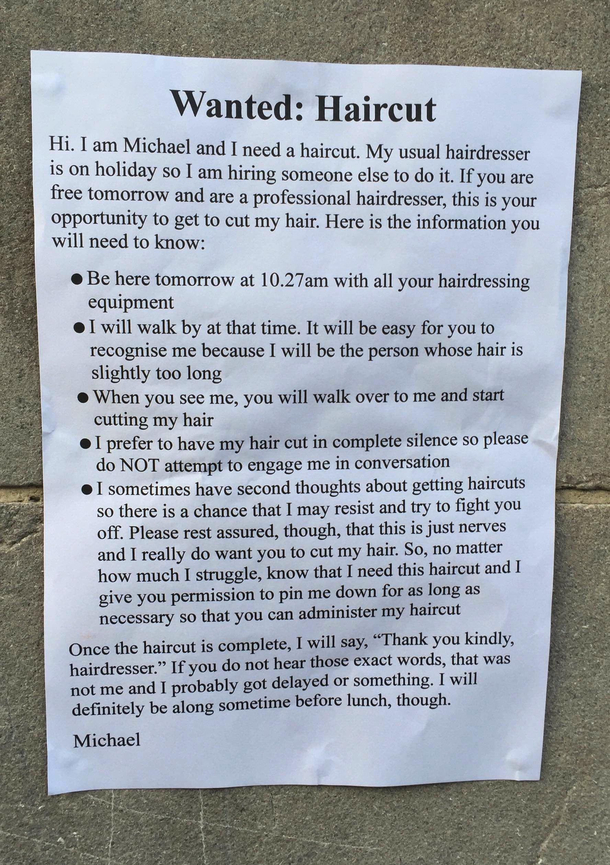 Wanted: Haircut
Hi. I am Michael and I need a haircut. My usual hairdresser
is on holiday so I am hiring someone else to do it. If you are
free tomorrow and are a professional hairdresser, this is your
opportunity to get to cut my hair. Here is the information you
will need to know:
● Be here tomorrow at 10.27am with all your hairdressing
equipment
● I will walk by at that time. It will be easy for you to
recognise me because I will be the person whose hair is
slightly too long
● When you see me, you will walk over to me and start
cutting my hair
● I prefer to have my hair cut in complete silence so please
do NOT attempt to engage me in conversation
● I sometimes have second thoughts about getting haircuts
so there is a chance that I may resist and try to fight you
off. Please rest assured, though, that this is just nerves
and I really do want you to cut my hair. So, no matter
how much I struggle, know that I need this haircut and I
give you permission to pin me down for as long as
necessary so that you can administer my haircut
Once the haircut is complete, I will say, “Thank you kindly,
hairdresser.” If you do not hear those exact words, that was
not me and I probably got delayed or something. I will
definitely be along sometime before lunch, though.
Michael